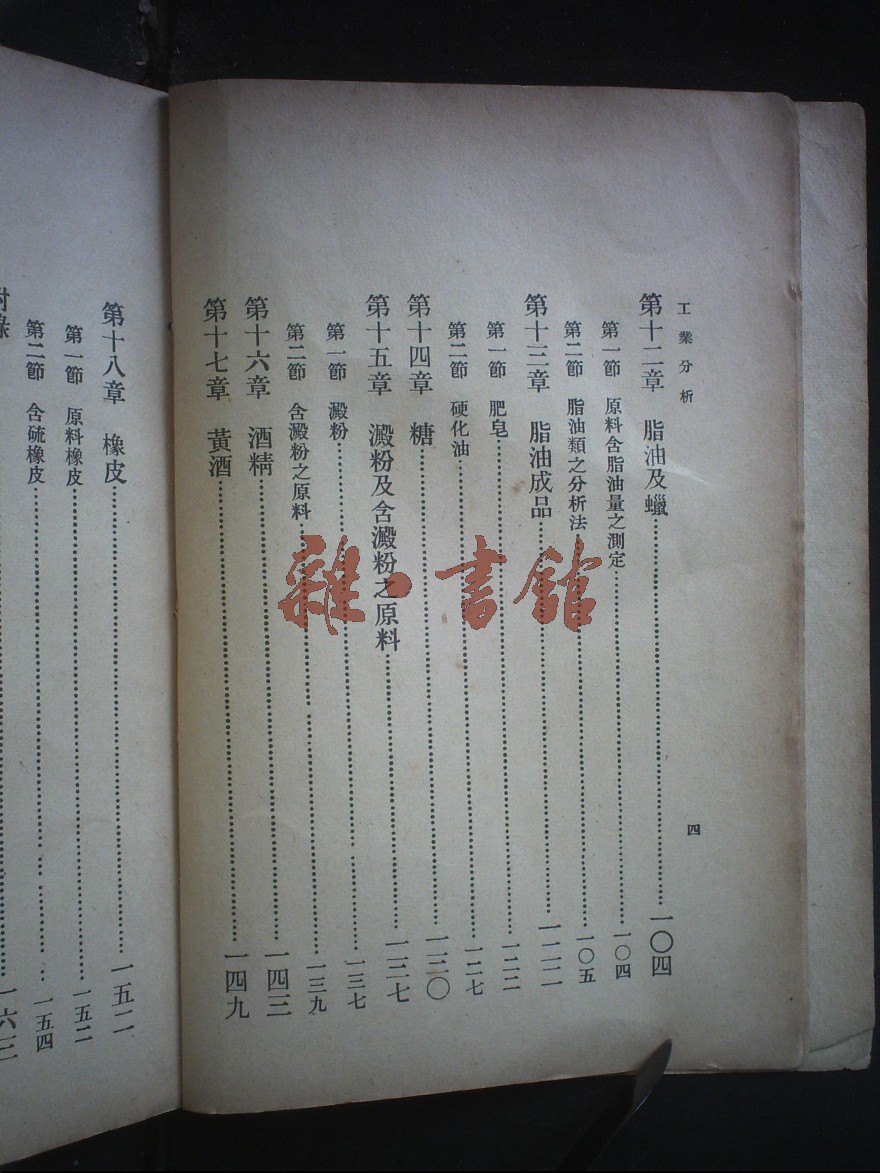 工業分析
四
第十二章 脂油及蠟……一〇四
第一節 原料含脂油量之測定……一〇四
第二節 脂油類之分析法……一〇五
第十三章 脂油成品……一二二
第一節 肥皂……一二二
第二節 硬化油……一二七
第十四章 糖……一三〇
第十五章 澱粉及含澱粉之原料……一三七
第一節 澱粉……一三七
第二節 含澱粉之原料……一三九
第十六章 酒精……一四三
第十七章 黃酒……一四九
第十八章 橡皮……一五二
第一節 原料橡皮……一五二
第二節 含硫橡皮……一五四
附錄……一六三
雜·書館